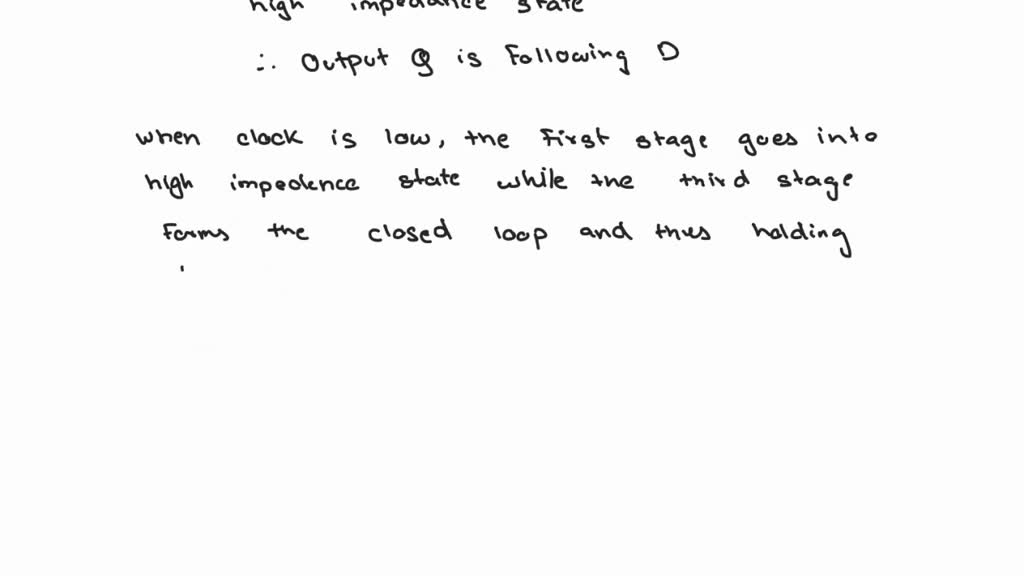 high impedance state
∴ Output Q is Following D
when clock is low, the First stage goes into
high impedence state while the third stage
Forms the closed loop and thus holding